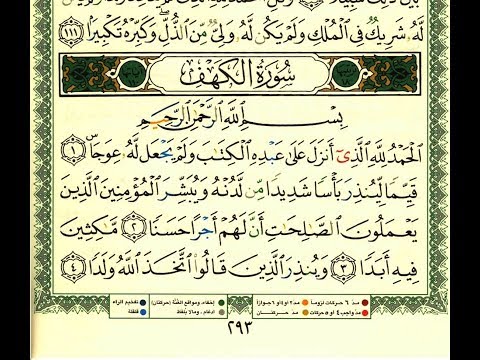 لَّهُۥ شَرِيكٌ فِى ٱلْمُلْكِ وَلَمْ يَكُن لَّهُۥ وَلِىٌّ مِّنَ ٱلذُّلِّ وَكَبِّرْهُ تَكْبِيرًۢا ١١١
سُورَةُ الكَهْفِ
بِسْمِ ٱللَّهِ ٱلرَّحْمَٰنِ ٱلرَّحِيمِ
ٱلْحَمْدُ لِلَّهِ ٱلَّذِىٓ أَنزَلَ عَلَىٰ عَبْدِهِ ٱلْكِتَٰبَ وَلَمْ يَجْعَل لَّهُۥ عِوَجَاۜ ١
قَيِّمًا لِّيُنذِرَ بَأْسًا شَدِيدًا مِّن لَّدُنْهُ وَيُبَشِّرَ ٱلْمُؤْمِنِينَ ٱلَّذِينَ
يَعْمَلُونَ ٱلصَّٰلِحَٰتِ أَنَّ لَهُمْ أَجْرًا حَسَنًا ٢ مَّٰكِثِينَ
فِيهِ أَبَدًا ٣ وَيُنذِرَ ٱلَّذِينَ قَالُوا۟ ٱتَّخَذَ ٱللَّهُ وَلَدًا ٤
مدّ ٦ حركات لزوماً مدّ ٢ أو ٤ أو ٦ جوازاً إخفاء، ومواقع الغُنَّة (حركتان) تفخيم الراء
مدّ واجب ٤ أو ٥ حركات مدّ حركتان ادغام، ومالا يُلفظ قلقلة
٢٩٣